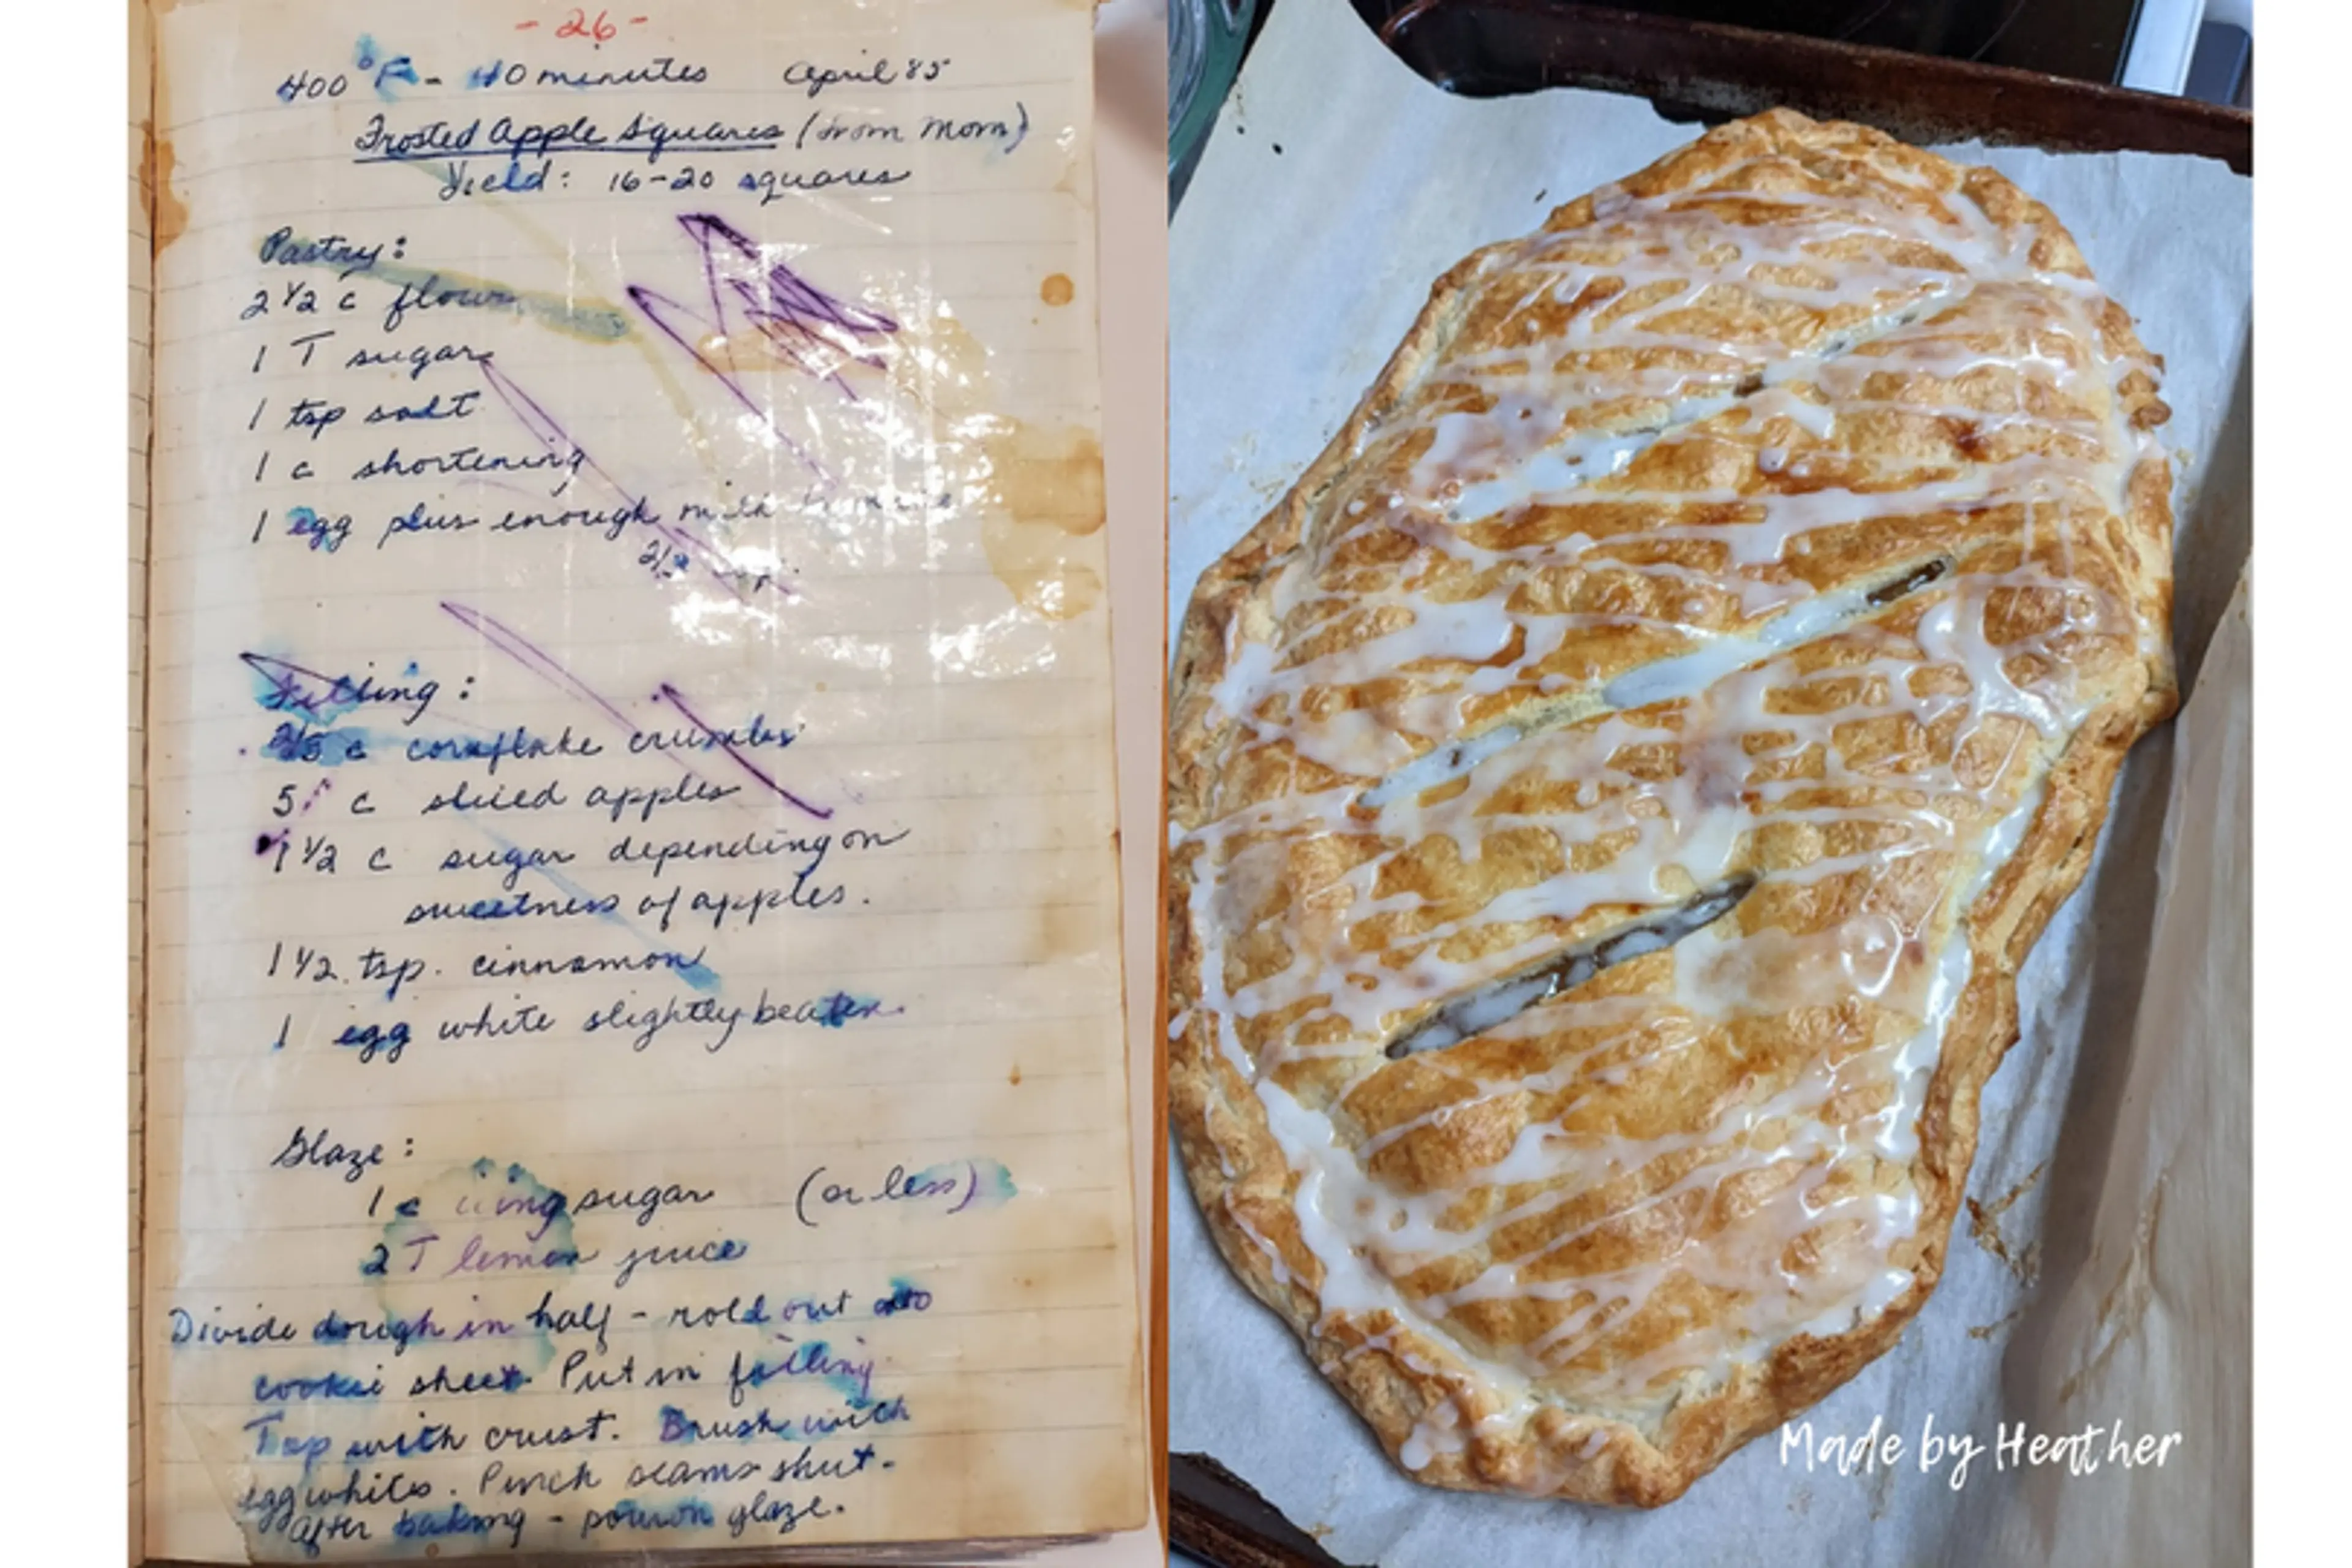 - 26 -
400°F - 40 minutes April 85
Frosted Apple Squares (from Mom)
Yield: 16-20 squares
Pastry:
2 1/2 c flour
1 T sugar
1 tsp salt
1 c shortening
1 egg plus enough milk to make
2/3 cup.
Filling:
2/3 c cornflake crumbs
5 c sliced apples
1 1/2 c sugar depending on
sweetness of apples.
1 1/2 tsp. cinnamon
1 egg white slightly beaten.
Glaze:
1 c icing sugar (or less)
2 T lemon juice
Divide dough in half - roll out onto
cookie sheet. Put in filling
Top with crust. Brush with
egg whites. Pinch seams shut.
After baking - pour on glaze.
Made by Heather